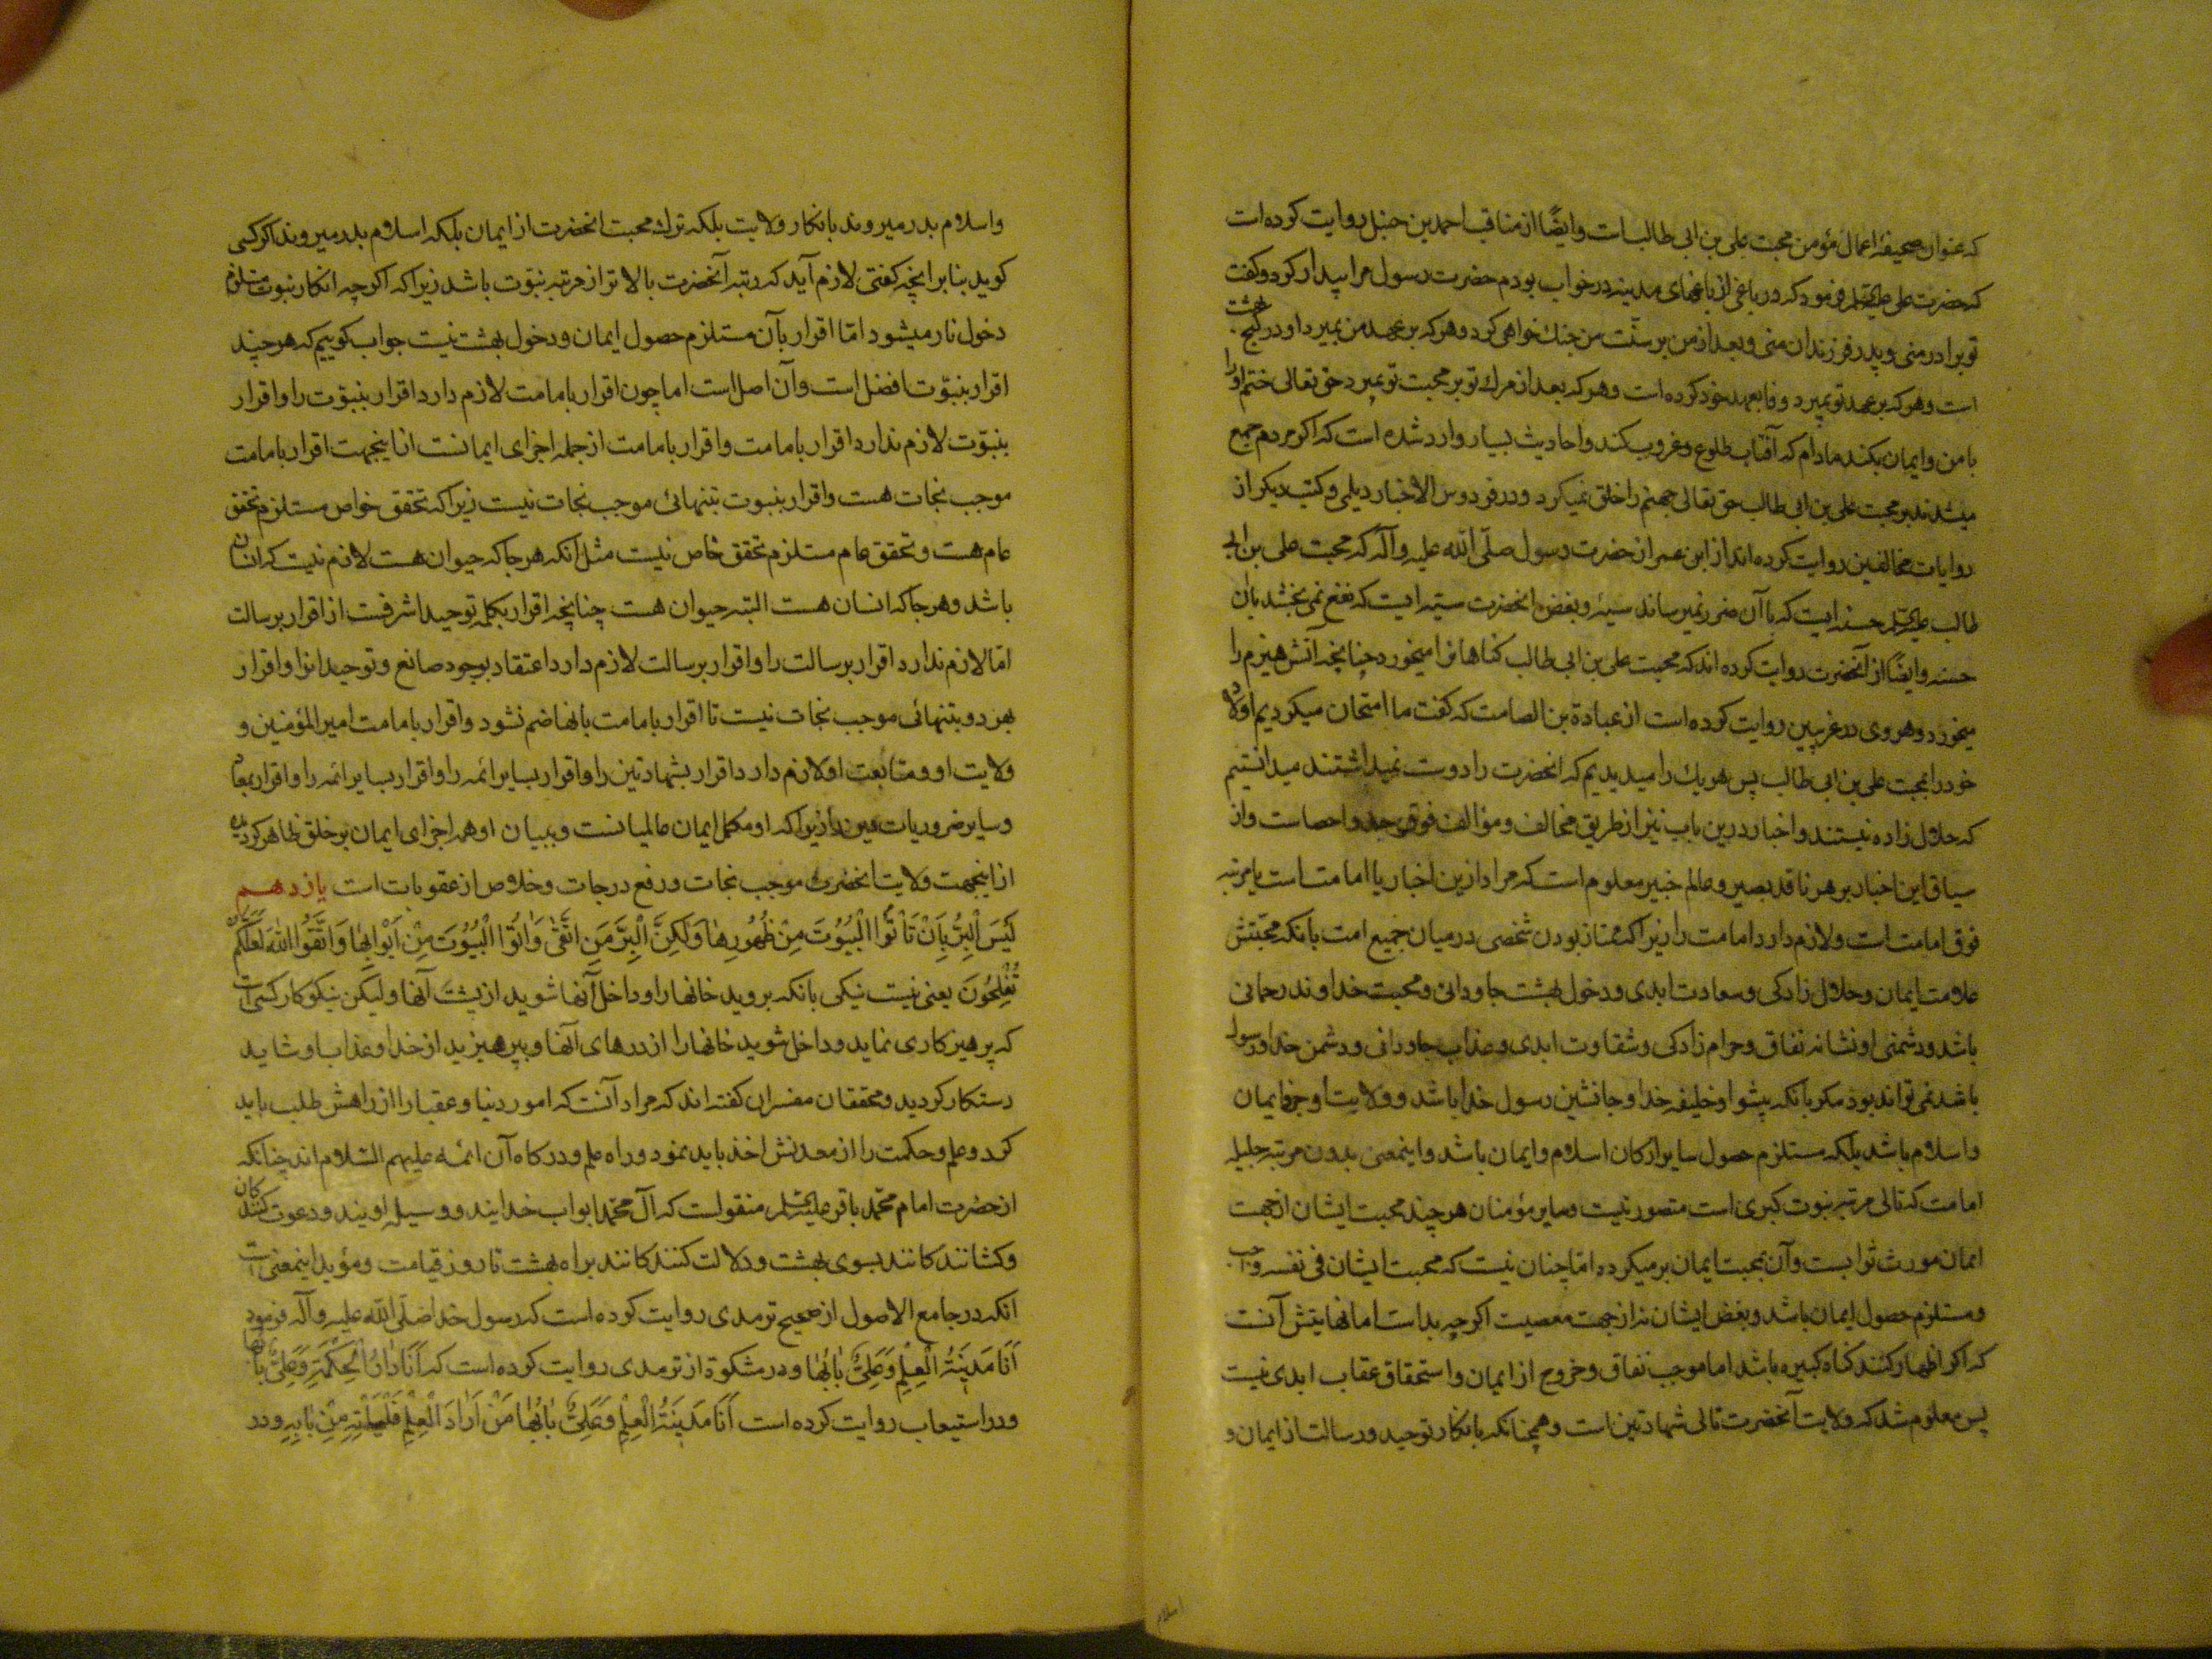 که عنوان صحیفهٔ اعمال مؤمن محبت علی بن ابی طالبست وایضًا از مناقب احمد بن حنبل روایت کوده است
که حضرت علی علیه السلم فرمود که در باغی از باغهای مدینه در خواب بودم حضرت رسول مرا بیدار کرد و کفت
تو برادر منی و پدر فرزندان منی و بعد از من بر سنّت من جنك خواهی کرد و هر که بر عهد من بمیرد او در کنج بهشت
است و هر که بر عهد تو بمیرد وفا بعهد خود کرده است و هر که بعد از مرك تو بر محبت تو بمیرد حق تعالی ختم او را
با من و ایمان بکند مادام که آفتاب طلوع و غروب کند و احادیث بسیار وارد شده است که اکر مردم جمع
میشدند بر محبت علی بن ابی طالب حق تعالی جهنم را خلق نمیکرد و در فردوس الاخبار دیلمی و کتب دیکر از
روایات مخالفین روایت کرده اند از ابن عمر از حضرت رسول صلّی الله علیه و آله که محبت علی بن ابی
طالب علیه السلم حسنه ایست که با آن ضرر نمیرساند سیئه و بغض انحضرت سیئه ایست که نفع نمی بخشد بان
حسنه و ایضًا از آنحضرت روایت کرده اند که محبت علی بن ابی طالب کناهانرا میخورد چنانچه آتش هیزم را
میخورد و هروی در غریبین روایت کرده است از عبادة بن الصامت که کفت ما امتحان میکردیم اولاد
خود را بمحبت علی بن ابی طالب پس هر یك را میدیدیم که انحضرت را دوست نمیداشتند میدانستیم
که حلال زاده نیستند و اخبار درین باب نیز از طریق مخالف و مؤالف فوق حد و احصاست و از
سیاق این اخبار بر هر ناقد بصیر و عالم خبیر معلوم است که مراد ازین اخبار یا امامت است یا مرتبهٔ
فوق امامت است و لازم دارد امامت را زیرا که ممتاز بودن شخصی در میان جمیع امت بانکه محبّتش
علامت ایمان و حلال زادکی و سعادت ابدی و دخول بهشت جاودانی و محبت خداوند رحمانی
باشد و دشمنی او نشانه نفاق و حرام زادکی و شقاوت ابدی و عذاب جاودانی و دشمن خدا و رسول
باشد نمی تواند بود مکر بانکه پیشوا و خلیفه خدا و جانشین رسول خدا باشد و ولایت او جزء ایمان
و اسلام باشد بلکه مستلزم حصول سایر ارکان اسلام و ایمان باشد و اینمعنی بدون مرتبه جلیله
امامت که تالی مرتبه نبوت کبری است متصور نیست و سایر مؤمنان هر چند محبت ایشان از جهت
ایمان مورث ثوابست و آن بمحبت ایمان بر میکردد امّا چنان نیست که محبت ایشان فی نفسه واجب
و مستلزم حصول ایمان باشد و بغض ایشان نه از جهت معصیت اکرچه بد است اما نهایتش آنست
که اکر اظهار کنند کناه کبیره باشد اما موجب نفاق و خروج از ایمان و استحقاق عقاب ابدی نیست
پس معلوم شد که ولایت آنحضرت تالی شهادتین است و همچنانکه بانکار توحید و رسالت از ایمان و
اسلام
واسلام بدر میروند بانکار ولایت بلکه ترك محبت انحضرت از ایمان بلکه اسلام بدر میروند اکر کسی
کوید بنا بر انچه کفتی لازم آید که رتبه آنحضرت بالاتر از مرتبه نبوّت باشد زیرا که اکرچه انکار نبوت مستلزم
دخول نار میشود امّا اقرار بآن مستلزم حصول ایمان و دخول بهشت نیست جواب کوییم که هر چند
اقرار بنبوّت افضل است و آن اصل است اما چون اقرار بامامت لازم دارد اقرار بنبوّت را و اقرار
بنبوّت لازم ندارد اقرار بامامت و اقرار بامامت از جمله اجزای ایمانست از اینجهت اقرار بامامت
موجب نجات هست و اقرار بنبوت بتنهائی موجب نجات نیست زیرا که تحقق خواص مستلزم تحقق
عام هست و تحقق عام مستلزم تحقق خاص نیست مثل انکه هر جا که حیوان هست لازم نیست که انسان
باشد و هر جا که انسان هست البته حیوان هست چنانچه اقرار بکلمه توحید اشرفست از اقرار برسالت
امّا لازم ندارد اقرار برسالت را و اقرار برسالت لازم دارد اعتقاد بوجود صانع و توحید انرا و اقرار
بهر دو بتنهائی موجب نجات نیست تا اقرار بامامت بانها ضم نشود و اقرار بامامت امیر المؤمنین و
ولایت او و متابعت او لازم دارد اقرار بشهادتین را و اقرار بسایر ائمه را و اقرار بسایر ائمه را و اقرار بمعاد
و سایر ضروریات دین را زیرا که او مکمل ایمان عالمیانست و ببیان او همه اجزای ایمان بر خلق ظاهر کردیده
از اینجهت ولایت انحضرت موجب نجات و رفع درجات و خلاص از عقوبات است یازدهم
لَیْسَ الْبِرُّ بِاَنْ تَأْتُوا الْبُیُوتَ مِنْ ظُهُورِهٰا وَلٰکِنَّ الْبِرَّ مَنِ اتَّقٰی وَأْتُوا الْبُیُوتَ مِنْ اَبْوٰابِهٰا وَاتَّقُوا اللّٰهَ لَعَلَّکُمْ
تُفْلِحُونَ یعنی نیست نیکی بانکه بروید خانها را و داخل آنها شوید از پشت آنها ولیکن نیکو کار کسی است
که پرهیزکاری نماید و داخل شوید خانها را از درهای آنها و بپرهیزید از خدا و عذاب او شاید
رستکار کردید و محققان مفسران کفته اند که مراد آنست که امور دنیا و عقبا را از راهش طلب باید
کرد و علم و حکمت را از معدنش اخذ باید نمود و راه علم و درکاه آن ائمه علیهم السّلام اند چنانکه
از حضرت امام محمّد باقر علیه السلم منقولست که آل محمّد ابواب خدایند و وسیله اویند و دعوت کنندکان
و کشانندکانند بسوی بهشت و دلالت کنندکانند براه بهشت تا روز قیامت و مؤید اینمعنی است
انکه در جامع الاصول از صحیح ترمدی روایت کوده است که رسول خدا صَلّی اللّه علیه و آله فرمود
اَنَا مَدِینَةُ الْعِلْمِ وَعَلِیٌّ بٰابُهٰا و در مشکوة از ترمدی روایت کرده است که اَنَا دٰارُ الْحِکْمَةِ وَعَلِیٌّ بٰابُهٰا
و در استیعاب روایت کرده است اَنَا مَدِینَةُ الْعِلْمِ وَعَلِیٌّ بٰابُهٰا مَنْ اَرٰادَ الْعِلْمَ فَلْیَأْتِهِ مِنْ بٰابِهِ و در